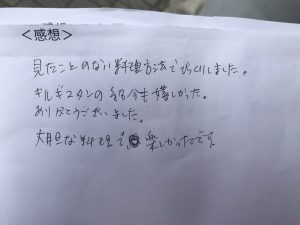 <感想>
見たことのない料理方法でびっくりしました。
キルギスタンの紹介も嬉しかった。
ありがとうございました。
大胆な料理で楽しかったです。